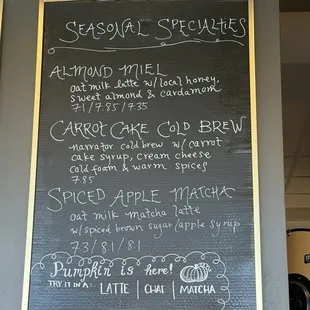 SEASONAL SPECIALTIES
ALMOND MIEL
oat milk latte w/ local honey,
sweet almond & cardamom
7.1 / 7.85 / 7.35
CARROT CAKE COLD BREW
narrator cold brew w/ carrot
cake syrup, cream cheese
cold foam & warm spices
7.85
SPICED APPLE MATCHA
oat milk matcha latte
w/ spiced brown sugar/apple syrup
7.3 / 8.1 / 8.1
Pumpkin is here!
TRY IT IN A: LATTE | CHAI | MATCHA